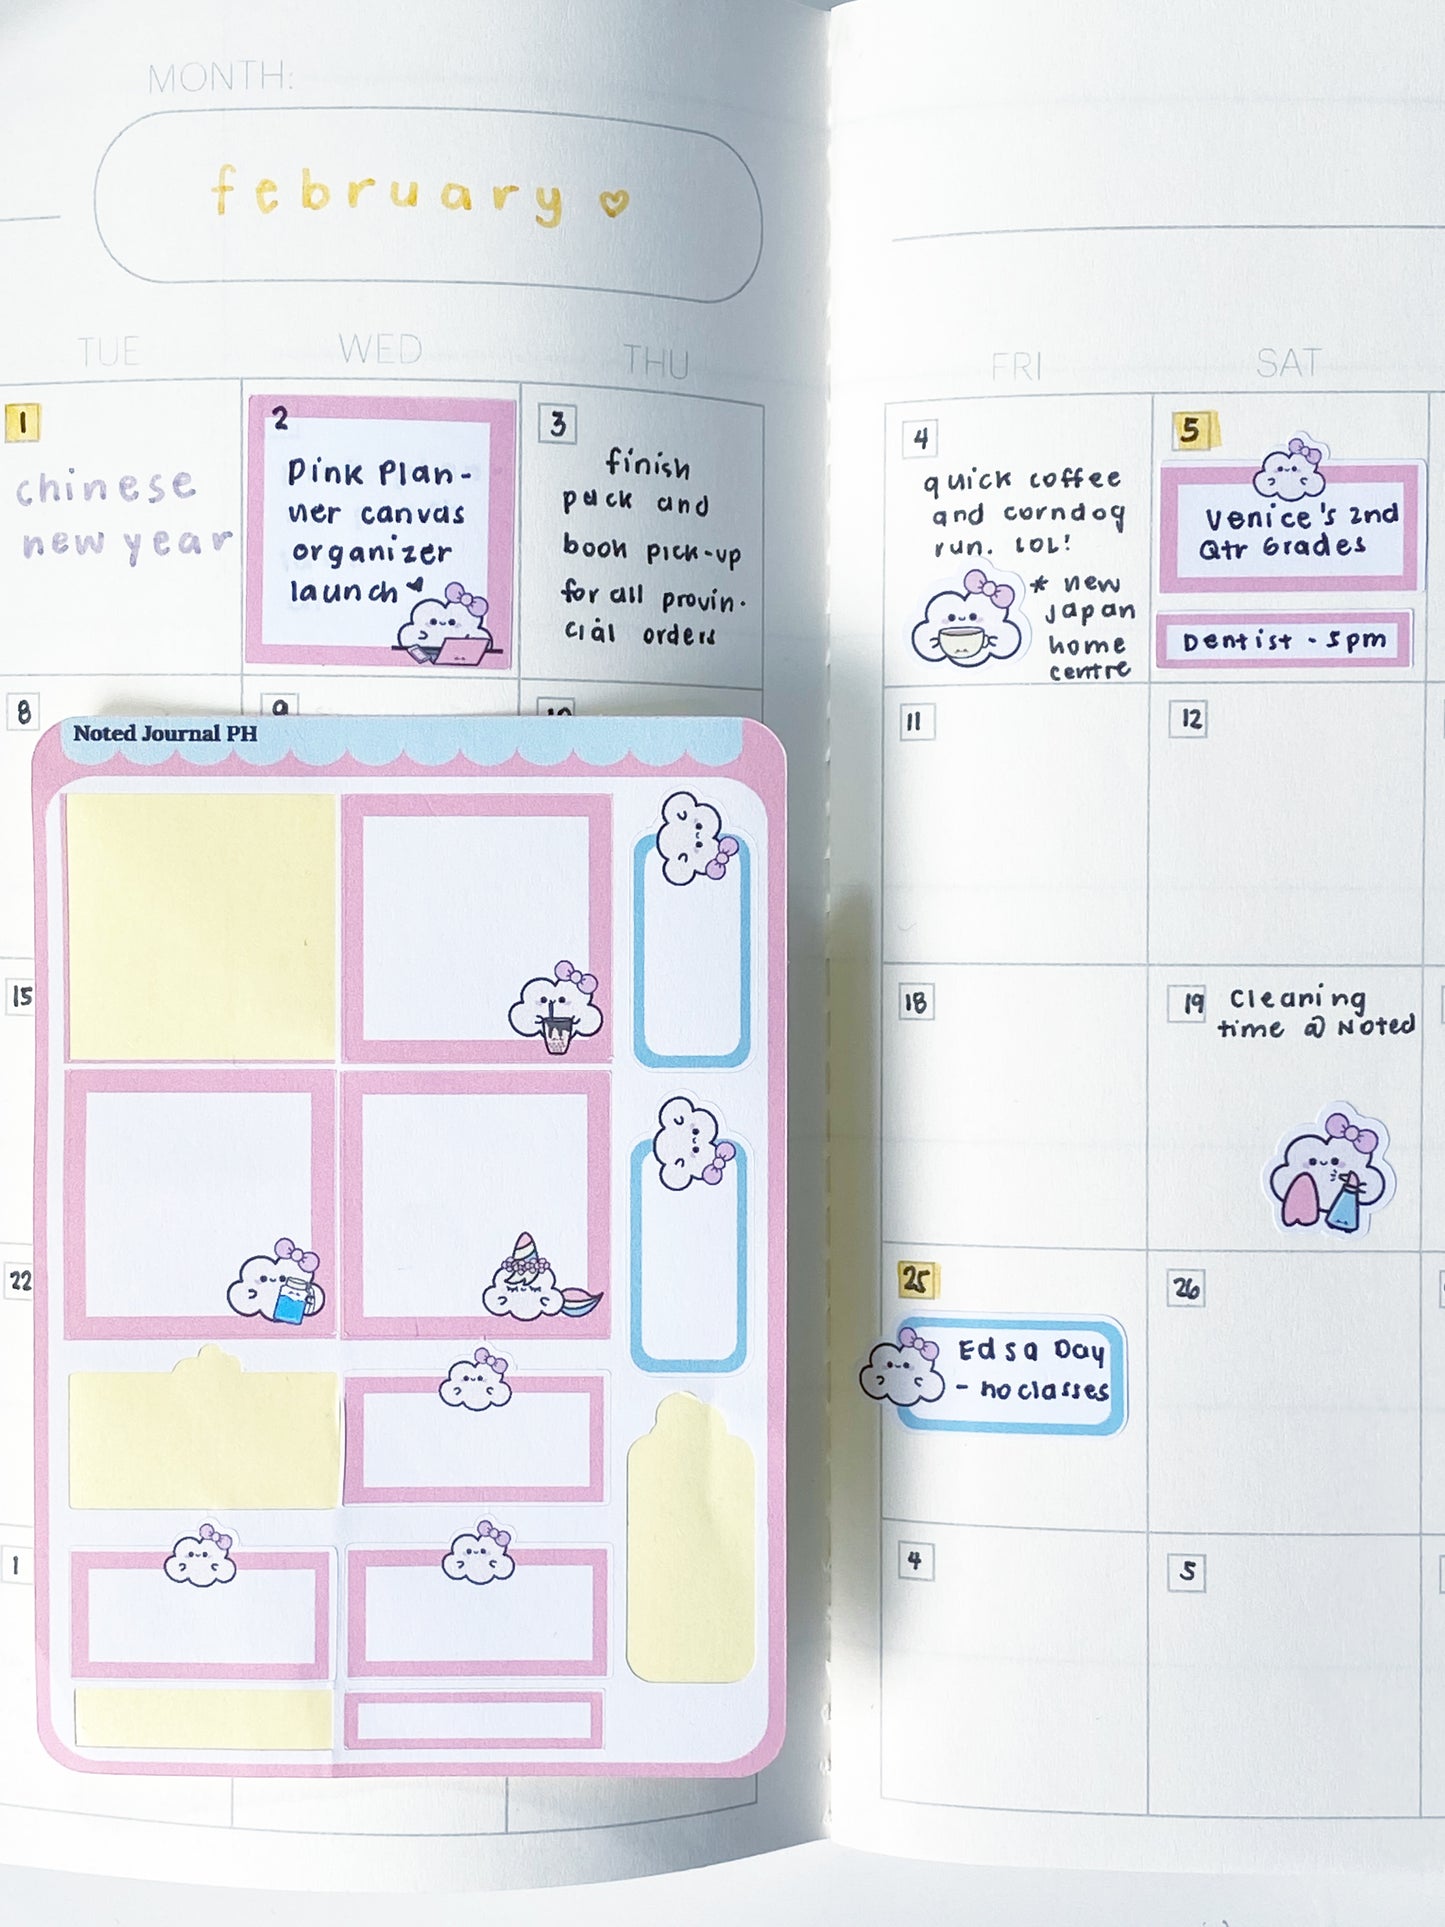 MONTH:
february
TUE
WED
THU
FRI
SAT
1
chinese
new year
2
Pink Plan-
ner canvas
organizer
launch
3
finish
pack and
book pick-up
for all provin-
cial orders
4
quick coffee
and corndog
run. LOL!
* new
Japan
home
centre
5
Venice's 2nd
Qtr Grades
Dentist - 5pm
8
9
10
11
12
Noted Journal PH
15
18
19
Cleaning
time @ Noted
22
25
Edsa Day
- no classes
26
1
4
5